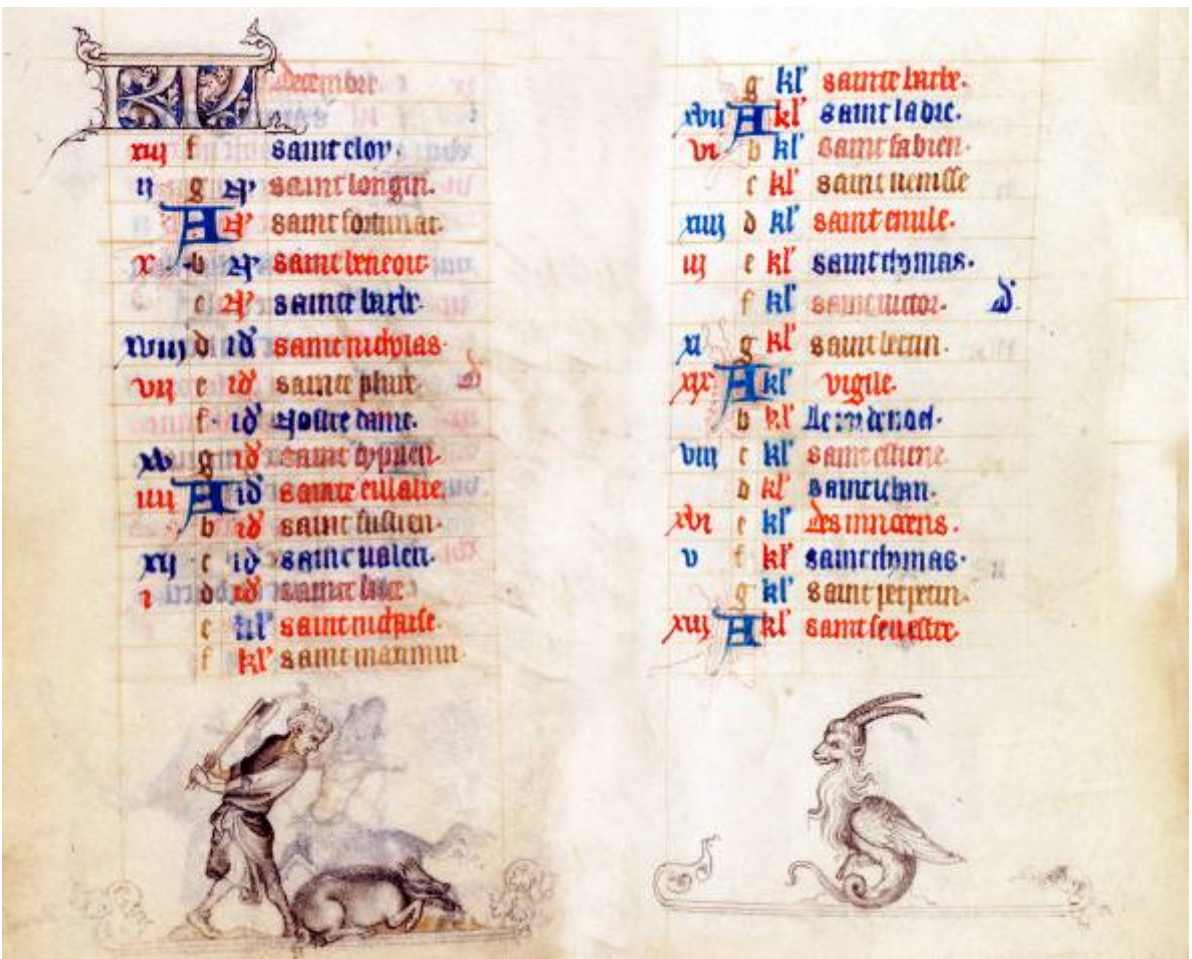 KL decembre
xiij f saint eloy.
ij g N' saint longin.
A N' saint fortunat.
x b N' saint beneoit
c N' sainte barbe.
xviij d id' saint nicholas.
vij e id' sainte
f id' Nostre dame.
xv g id' saint
iiij A id' sainte eulalie.
b id' saint fuscien.
xij c id' saint ualeri.
i d id' sainte luce
e kl' saint nichaise.
f kl' saint maximin.
g kl' sainte barbe.
xvij A kl' saint ladre.
vi b kl' saint fabien.
c kl' saint uenisse
xiiij d kl' saint
iij e kl' saint thomas.
f kl' saint uictor. d'
xi g kl' saint
xix A kl' vigile.
b kl' Le iour de noel.
viij c kl' saint estiene.
d kl' saint iehan.
xvi e kl' Les innocens.
v f kl' saint thomas.
g kl' saint
xiij A kl' saint seuestre.